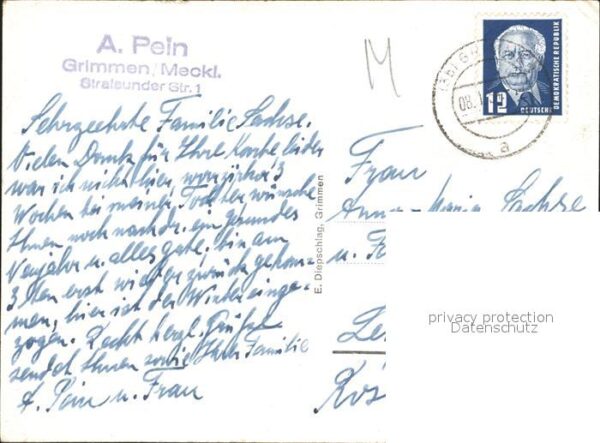 A. Pein
Grimmen/Meckl.
Stralsunder Str. 1
Sehrgeehrte Familie Sachse.
Vielen Dank für Ihre Karte leider
war ich nicht hier, war 3
Wochen bei meiner Tochter wünsche
Ihnen noch nachtr. ein gesundes
Neujahr u. alles gute. bin am
3 ten erst wieder zurück gekom-
men, hier ist der Winter einge-
zogen. Recht herzl. Grüße
sendet Ihnen sowie Ihrer Familie
A. Pein u. Frau
E. Diepschlag, Grimmen
M
12
DEUTSCHE DEMOKRATISCHE REPUBLIK
a
Frau
Anna-Maria Sachse
u. F
Le
privacy protection
Datenschutz